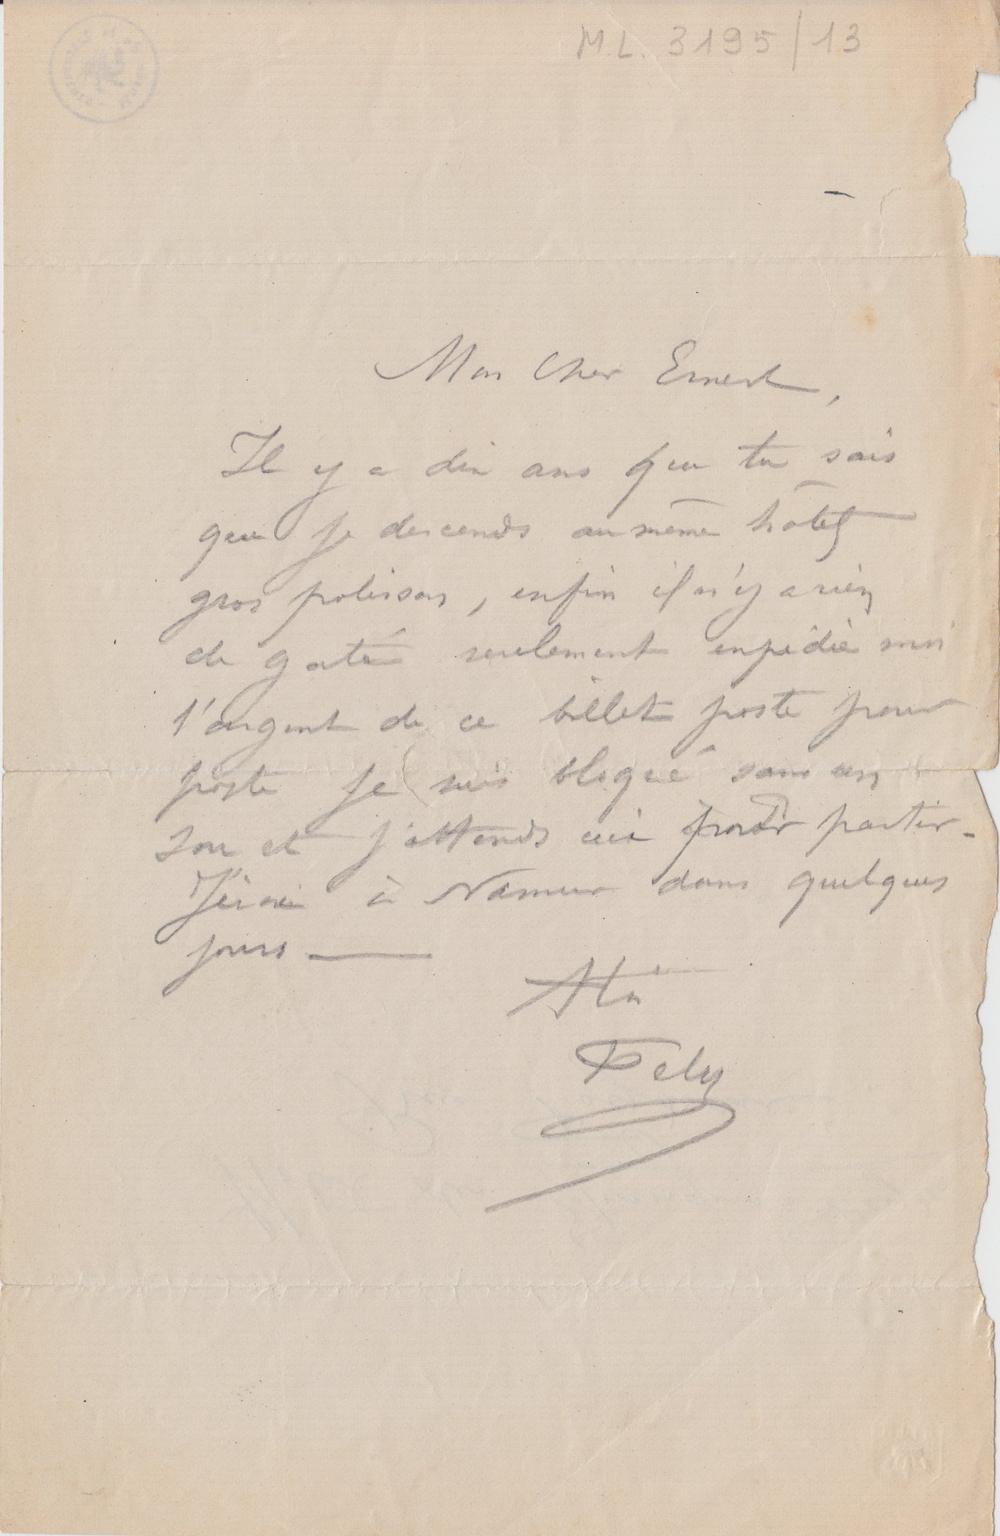 M.L. 3195/13
Mon Cher Ernest,
Il y a dix ans que tu sais
que je descends au même hôtel
gros polisson, enfin il n'y a rien
de gâté seulement expédie moi
l'argent de ce billet poste pour
poste je suis bloqué sans un
sou et j'attends cela pour partir.
J'irai à Namur dans quelques
jours
à toi
Fély